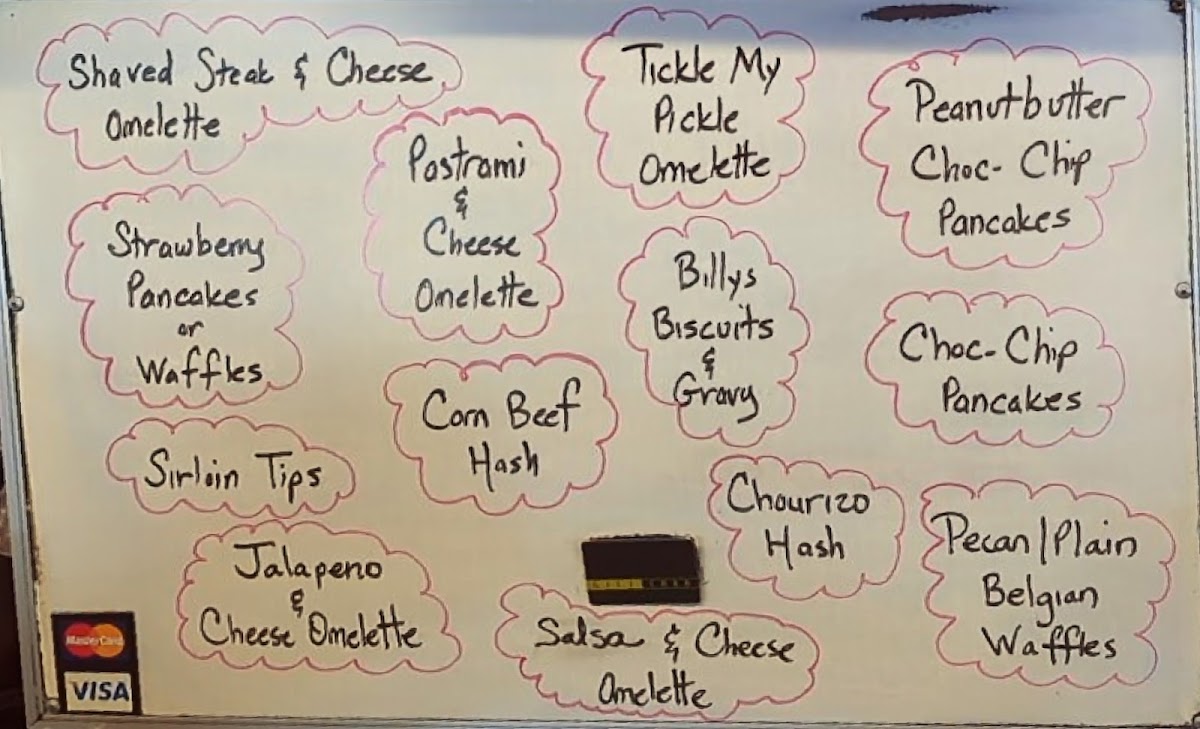 Shaved Steak & Cheese
Omelette
Tickle My
Pickle
Omelette
Peanutbutter
Choc-Chip
Pancakes
Pastrami
&
Cheese
Omelette
Strawberry
Pancakes
or
Waffles
Billys
Biscuits
&
Gravy
Choc-Chip
Pancakes
Corn Beef
Hash
Sirloin Tips
Chourizo
Hash
Pecan/Plain
Belgian
Waffles
Jalapeno
&
Cheese Omelette
Salsa & Cheese
Omelette
MasterCard
VISA